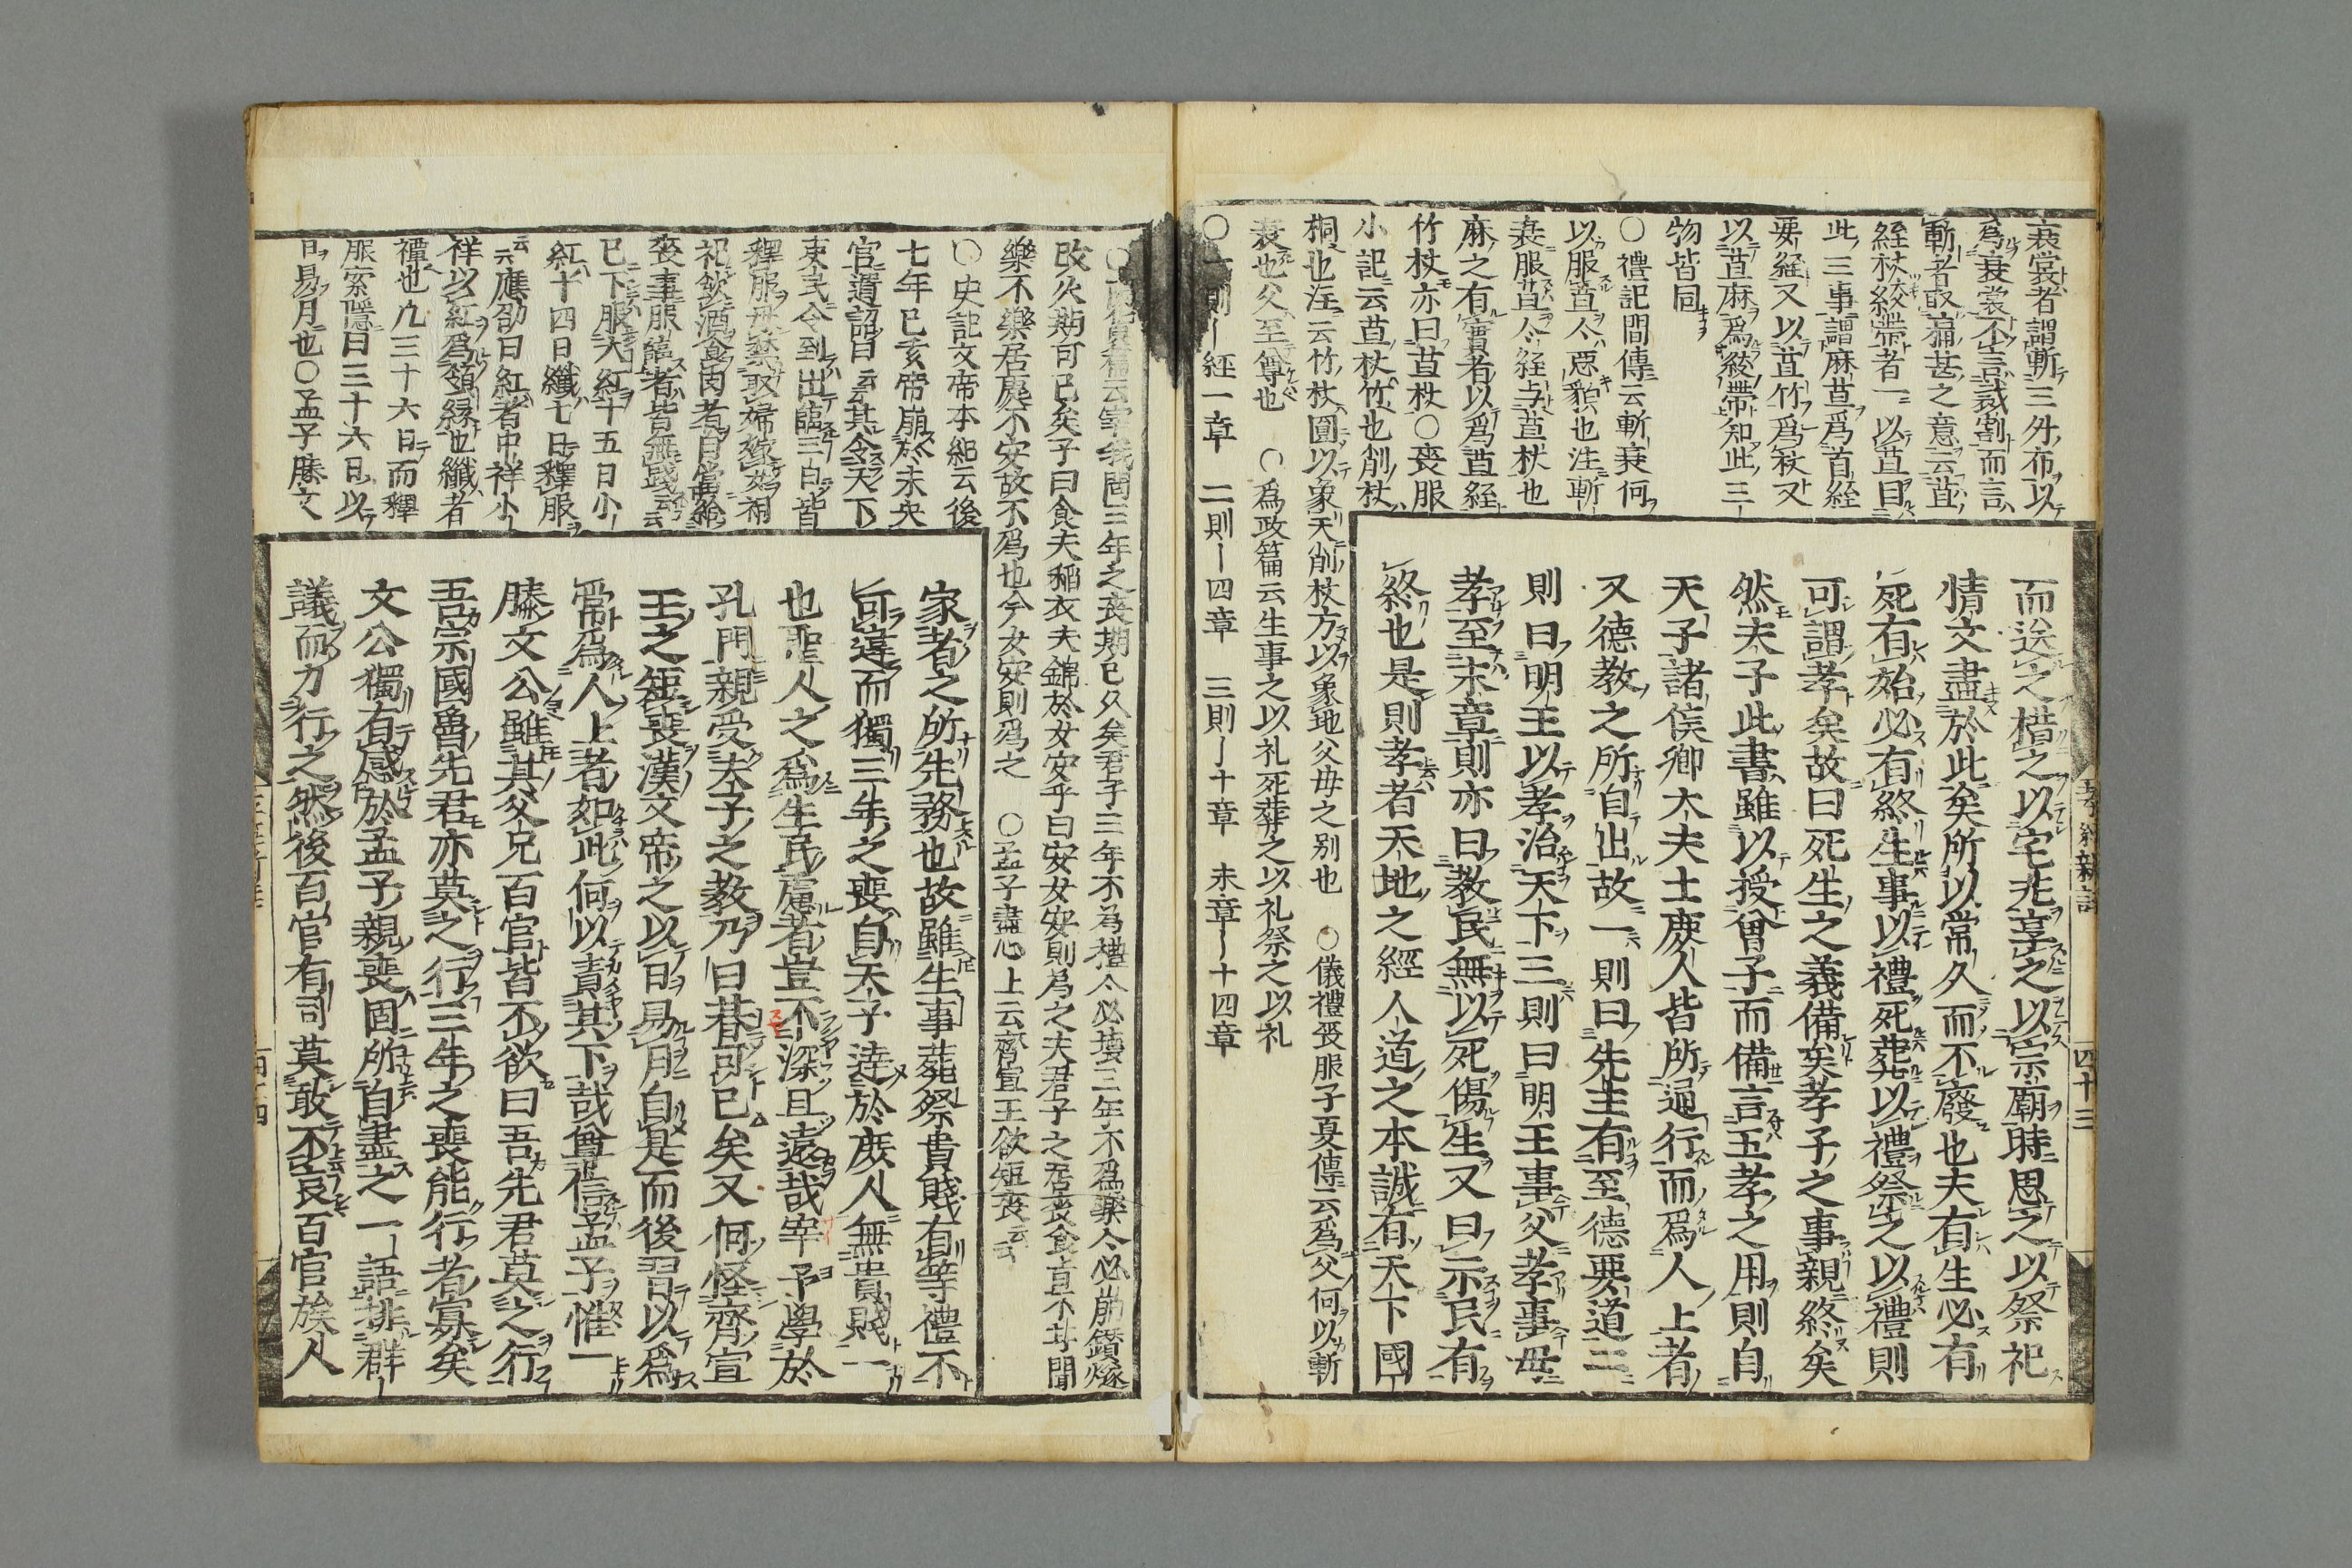 衰裳者謂斬三升布以
爲衰裳不言裁割而言
斬者取痛甚之意云苴
絰杖絞帶者一以苴目
此三事謂麻苴爲首絰
要絰又以苴竹爲杖又
以苴麻爲絞帶知此三
物皆同
○禮記間傳云斬衰何
以服苴人惡貌也注斬
衰服苴人絰与苴杖也
麻之有實者以爲苴絰
竹杖亦曰苴杖○喪服
小記云苴杖竹也削杖
桐也注云竹杖圓以象天削杖方以象地父母之別也 ○儀禮喪服子夏傳云爲父何以斬
衰也父至尊也 ○爲政篇云生事之以礼死葬之以礼祭之以礼
○一則経一章 二則四章 三則十章 末章十四章
而送之措之以宅兆享之以宗廟時思之以祭祀
情文盡於此矣所以常久而不廢也夫有生必有
死有始必有終生事以禮死葬以禮祭之以禮則
可謂孝矣故曰死生之義備矣孝子之事親終矣
然夫子此書雖以授曾子而備言五孝之用則自
天子諸侯卿大夫士庶人皆所通行而爲人上者
又德教之所自出故一則曰先王有至德要道二
則曰明王以孝治天下三則曰明王事父孝事母
孝至末章則亦曰教民無以死傷生又曰示民有
終也是則孝者天地之經人道之本誠有天下國
孝經新註 四十三
云宰我問三年之喪期已久矣君子三年不為禮々必壞三年不爲樂々必崩鑽燧
改火期可已矣子曰食夫稲衣夫錦於女安乎曰安女安則為之夫君子之居喪食旨不甘聞
樂不樂居處不安故不爲也今女安則爲之 ○孟子盡心上云齊宣王欲短喪云云
○史記文帝本紀云後
七年已亥帝崩於未央
官遺詔曰云云其令天下
吏民令到出臨三日皆
釋服毋禁取婦嫁女祠
祀飲酒食肉者自當給
喪事服臨者皆無踐云云
已下服大紅十五日小
紅十四日纖七日釋服
云云應劭曰紅者中祥小
祥以紅爲領緣也纖者
禫也九三十六日而釋
服索隱曰三十六日以
日易月也○孟子滕文
家者之所先務也故雖生事葬祭貴賤有等禮不
可違而獨三年之喪自天子達於庶人無貴賤一
也聖人之爲生民慮者豈不深且遠哉宰予學於
孔門親受夫子之教乃曰朞可已矣又何怪齊宣
王之短喪漢文帝之以日易月自是而後習以爲
常爲人上者如此何以責其下哉曾信孟子惟一
滕文公雖其父兄百官皆不欲曰吾先君莫之行
吾宗國魯先君亦莫之行三年之喪能行者寡矣
文公獨有感於孟子親喪固所自盡之一語排群
議而力行之然後百官有司莫敢不哀百官族人